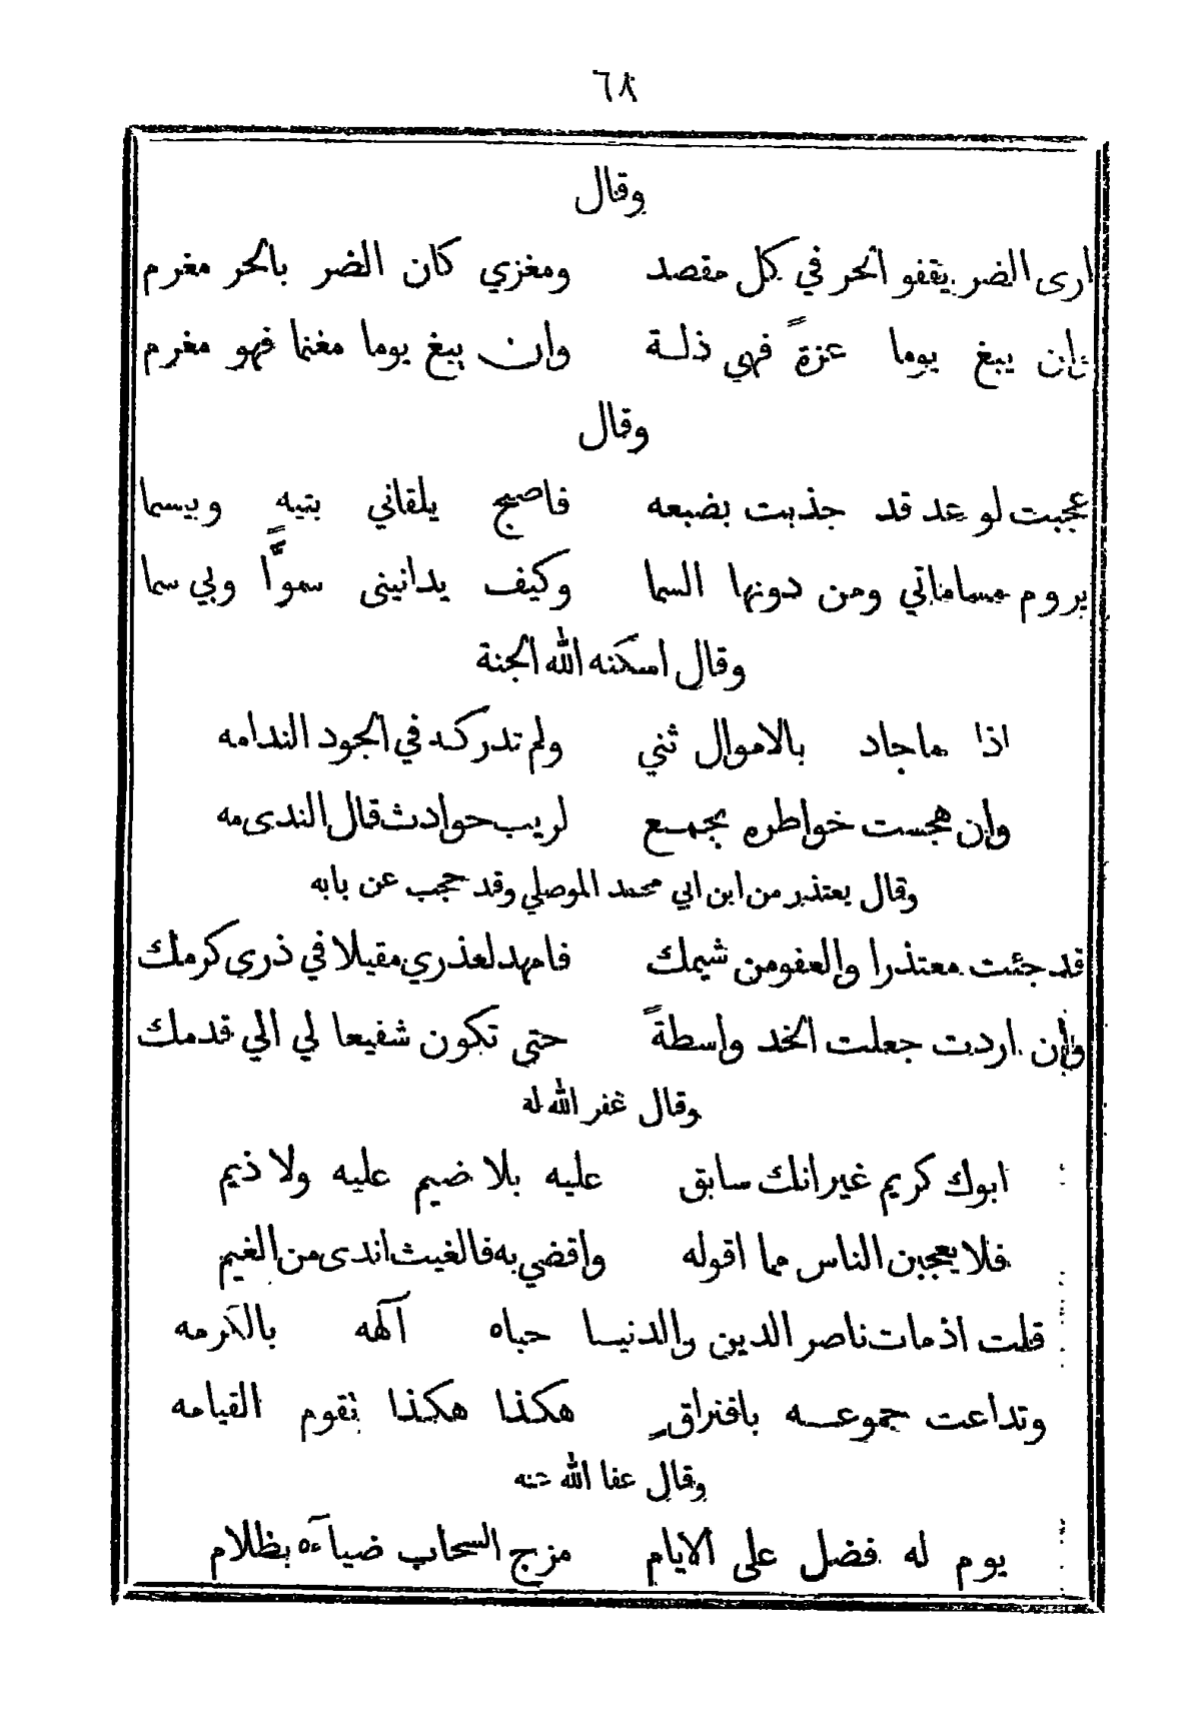 ٦٨
وقال
ارى الضر يقفو الحر في كل مقصد ومغزي كان الضر بالحر مغرم
فان يبغ يوما عزةً فهي ذلة وان يبغ يوما مغنما فهو مغرم
وقال
عجبت لوغد قد جذبت بضبعه فاصبح يلقاني بتيه وبيسما
يروم مساماتي ومن دونها السما وكيف يدانيني سموًّا وبي سما
وقال اسكنه الله الجنة
اذا ماجاد بالاموال ثني ولم تدركه في الجود الندامه
وان هجست خواطره بجمع لريب حوادث قال الندى مه
وقال يعتذر من ابن ابي محمد الموصلي وقد حجب عن بابه
قد جئت معتذرا والعفو من شيمك فامهد لعذري مقيلا في ذرى كرمك
وان اردت جعلت الخد واسطةً حتى تكون شفيعا لي الي قدمك
وقال غفر الله له
ابوك كريم غير انك سابق عليه بلا ضيم عليه ولا ذيم
فلا يعجبن الناس مما اقوله واقضي به فالغيث اندى من الغيم
قلت اذ مات ناصر الدين والدنيا حباه آلهه بالكرمه
وتداعت جموعه بافتراقٍ هكذا هكذا تقوم القيامه
وقال عفا الله عنه
يوم له فضل على الايام مزج السحاب ضيآءه بظلام